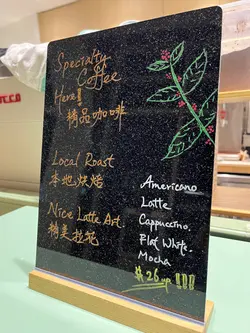 Specialty
Coffee
Here!!
精品咖啡
Local Roast
本地烘焙
Nice Latte Art.
精美拉花
Americano
Latte
Cappuccino.
Flat White.
Mocha
$26 up !!!